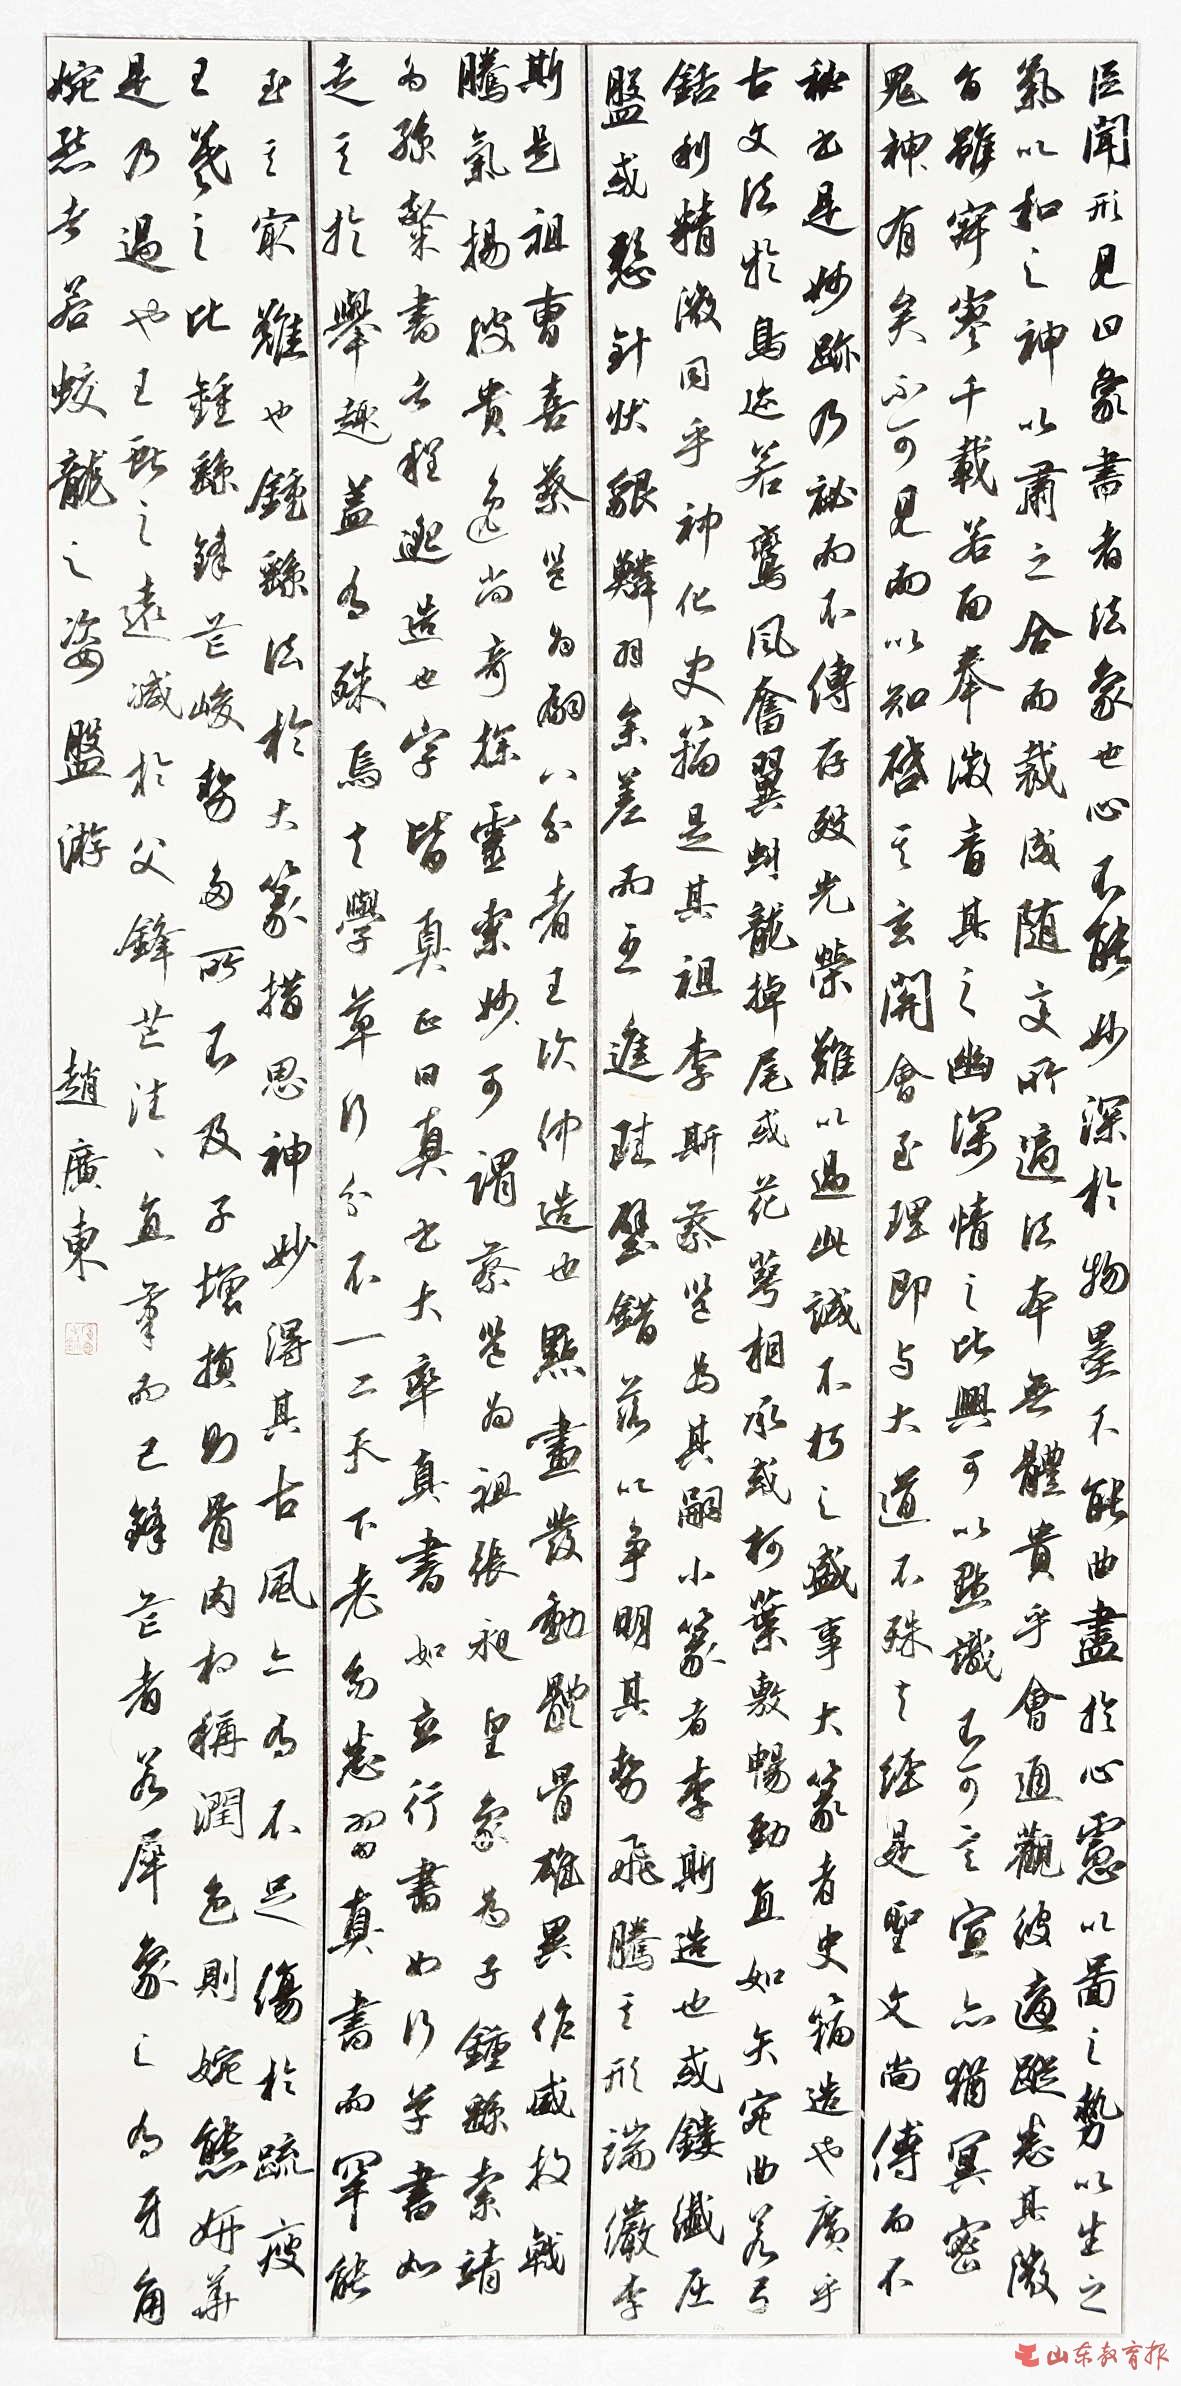 臣聞形見曰象書者法象也心不能妙深於物墨不能曲盡於心慮以圖之勢以生之
氣以和之神以肅之合而裁成随变所適法本無體貴乎會通觀彼適蹤悉其微
旨雖寂寥千載若面奉微音其之幽深情之比興可以默識不可言宣亦猶冥密
鬼神有矣不可見而以知啓其玄關會至理即与大道不殊夫經是聖文尚傳而不
秘书是妙跡乃祕而不傳存殁光榮難以過此誠不朽之盛事大篆者史籀造也廣乎
古文法於鳥迹若鸞鳳奮翼虬龍掉尾或花萼相承或柯葉敷暢勁直如矢宛曲若弓
銛利精微同乎神化史籀是其祖李斯蔡邕為其嗣小篆者李斯造也或鏤纖屈
盤或懸針狀貌鱗羽參差而互進珪璧錯落以争明其勢飛騰其形端儼李
斯是祖曹喜蔡邕为嗣八分者王次仲造也點畫發動體骨雄異作威投戟
騰氣揚波貴逸尚奇探靈索妙可謂蔡邕为祖張昶皇象為子鍾繇索靖
为孫隸書者程邈造也字皆真正曰真书大率真書如立行書如行草書如
走其於舉趣盖有殊焉夫學草行分不一二天下老幼悉習真書而罕能
至其最難也鍾繇法於大篆措思神妙得其古風亦有不足傷於疏瘦
王羲之比鍾繇鋒芒峻勢多所不及于增損則骨肉相稱潤色則婉態妍華
是乃過也王獻之遠減於父鋒芒往、直筆而已鋒芒者若犀象之有牙角
婉態者若蛟龍之姿盤游 趙廣東
山东教育报